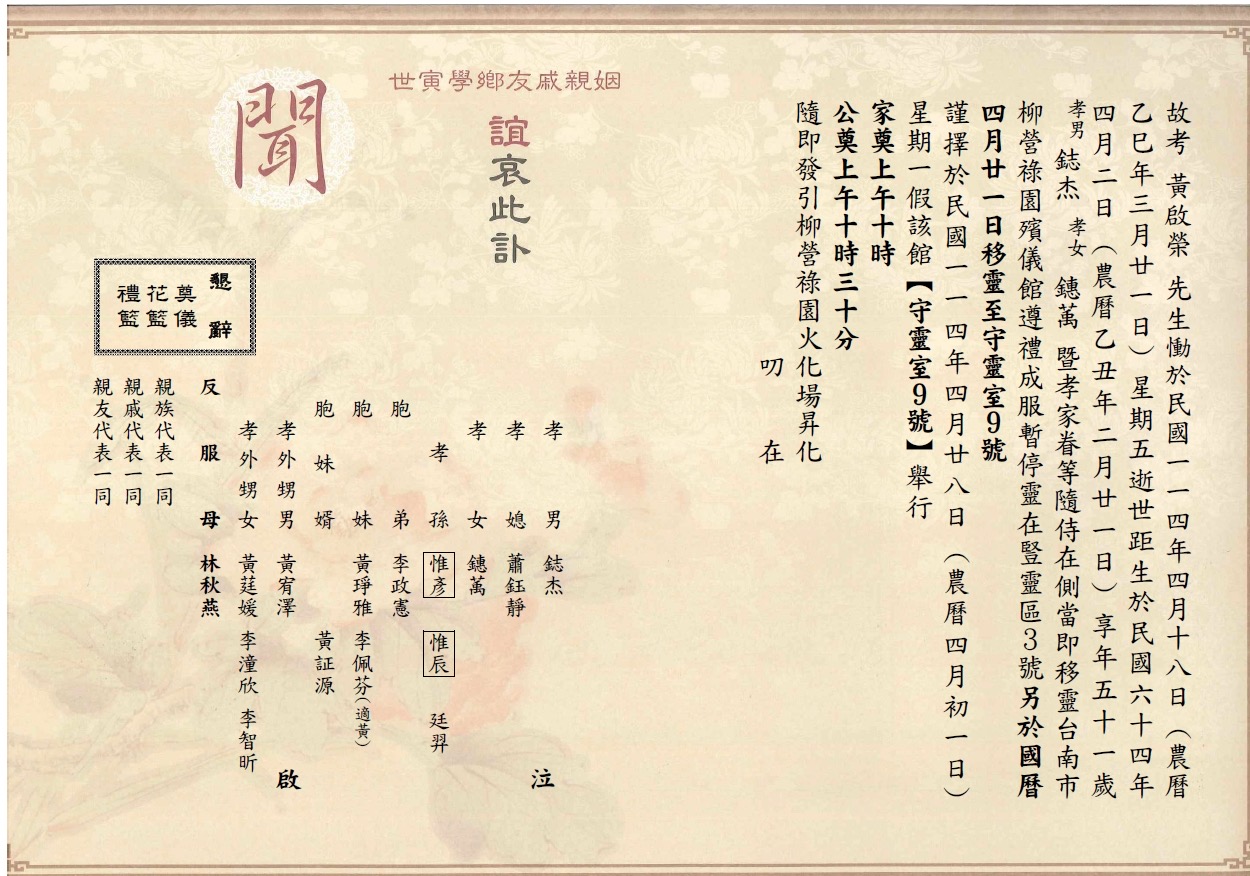 故考 黃啟榮 先生慟於民國一一四年四月十八日（農曆
乙巳年三月廿一日）星期五逝世距生於民國六十四年
四月二日（農曆乙丑年二月廿一日）享年五十一歲
孝男 鋕杰 孝女 鏸萬 暨孝家眷等隨侍在側當即移靈台南市
柳營祿園殯儀館遵禮成服暫停靈在豎靈區3號另於國曆
四月廿一日移靈至守靈室9號
謹擇於民國一一四年四月廿八日（農曆四月初一日）
星期一假該館【守靈室9號】舉行
家奠上午十時
公奠上午十時三十分
隨即發引柳營祿園火化場昇化
叨 在
姻親戚友鄉學寅世
誼哀此訃
聞
孝男 鋕杰 泣
孝媳 蕭鈺靜
孝女 鏸萬
孝孫 惟彥 惟辰 廷羿
胞弟 李政憲
胞妹 黃琤雅 李佩芬（適黃）
胞妹婿 黃証源
孝外甥男 黃宥澤 啟
孝外甥女 黃莛媛 李潼欣 李智昕
反服母 林秋燕
親族代表一同
親戚代表一同
親友代表一同
懇辭
奠儀
花籃
禮籃